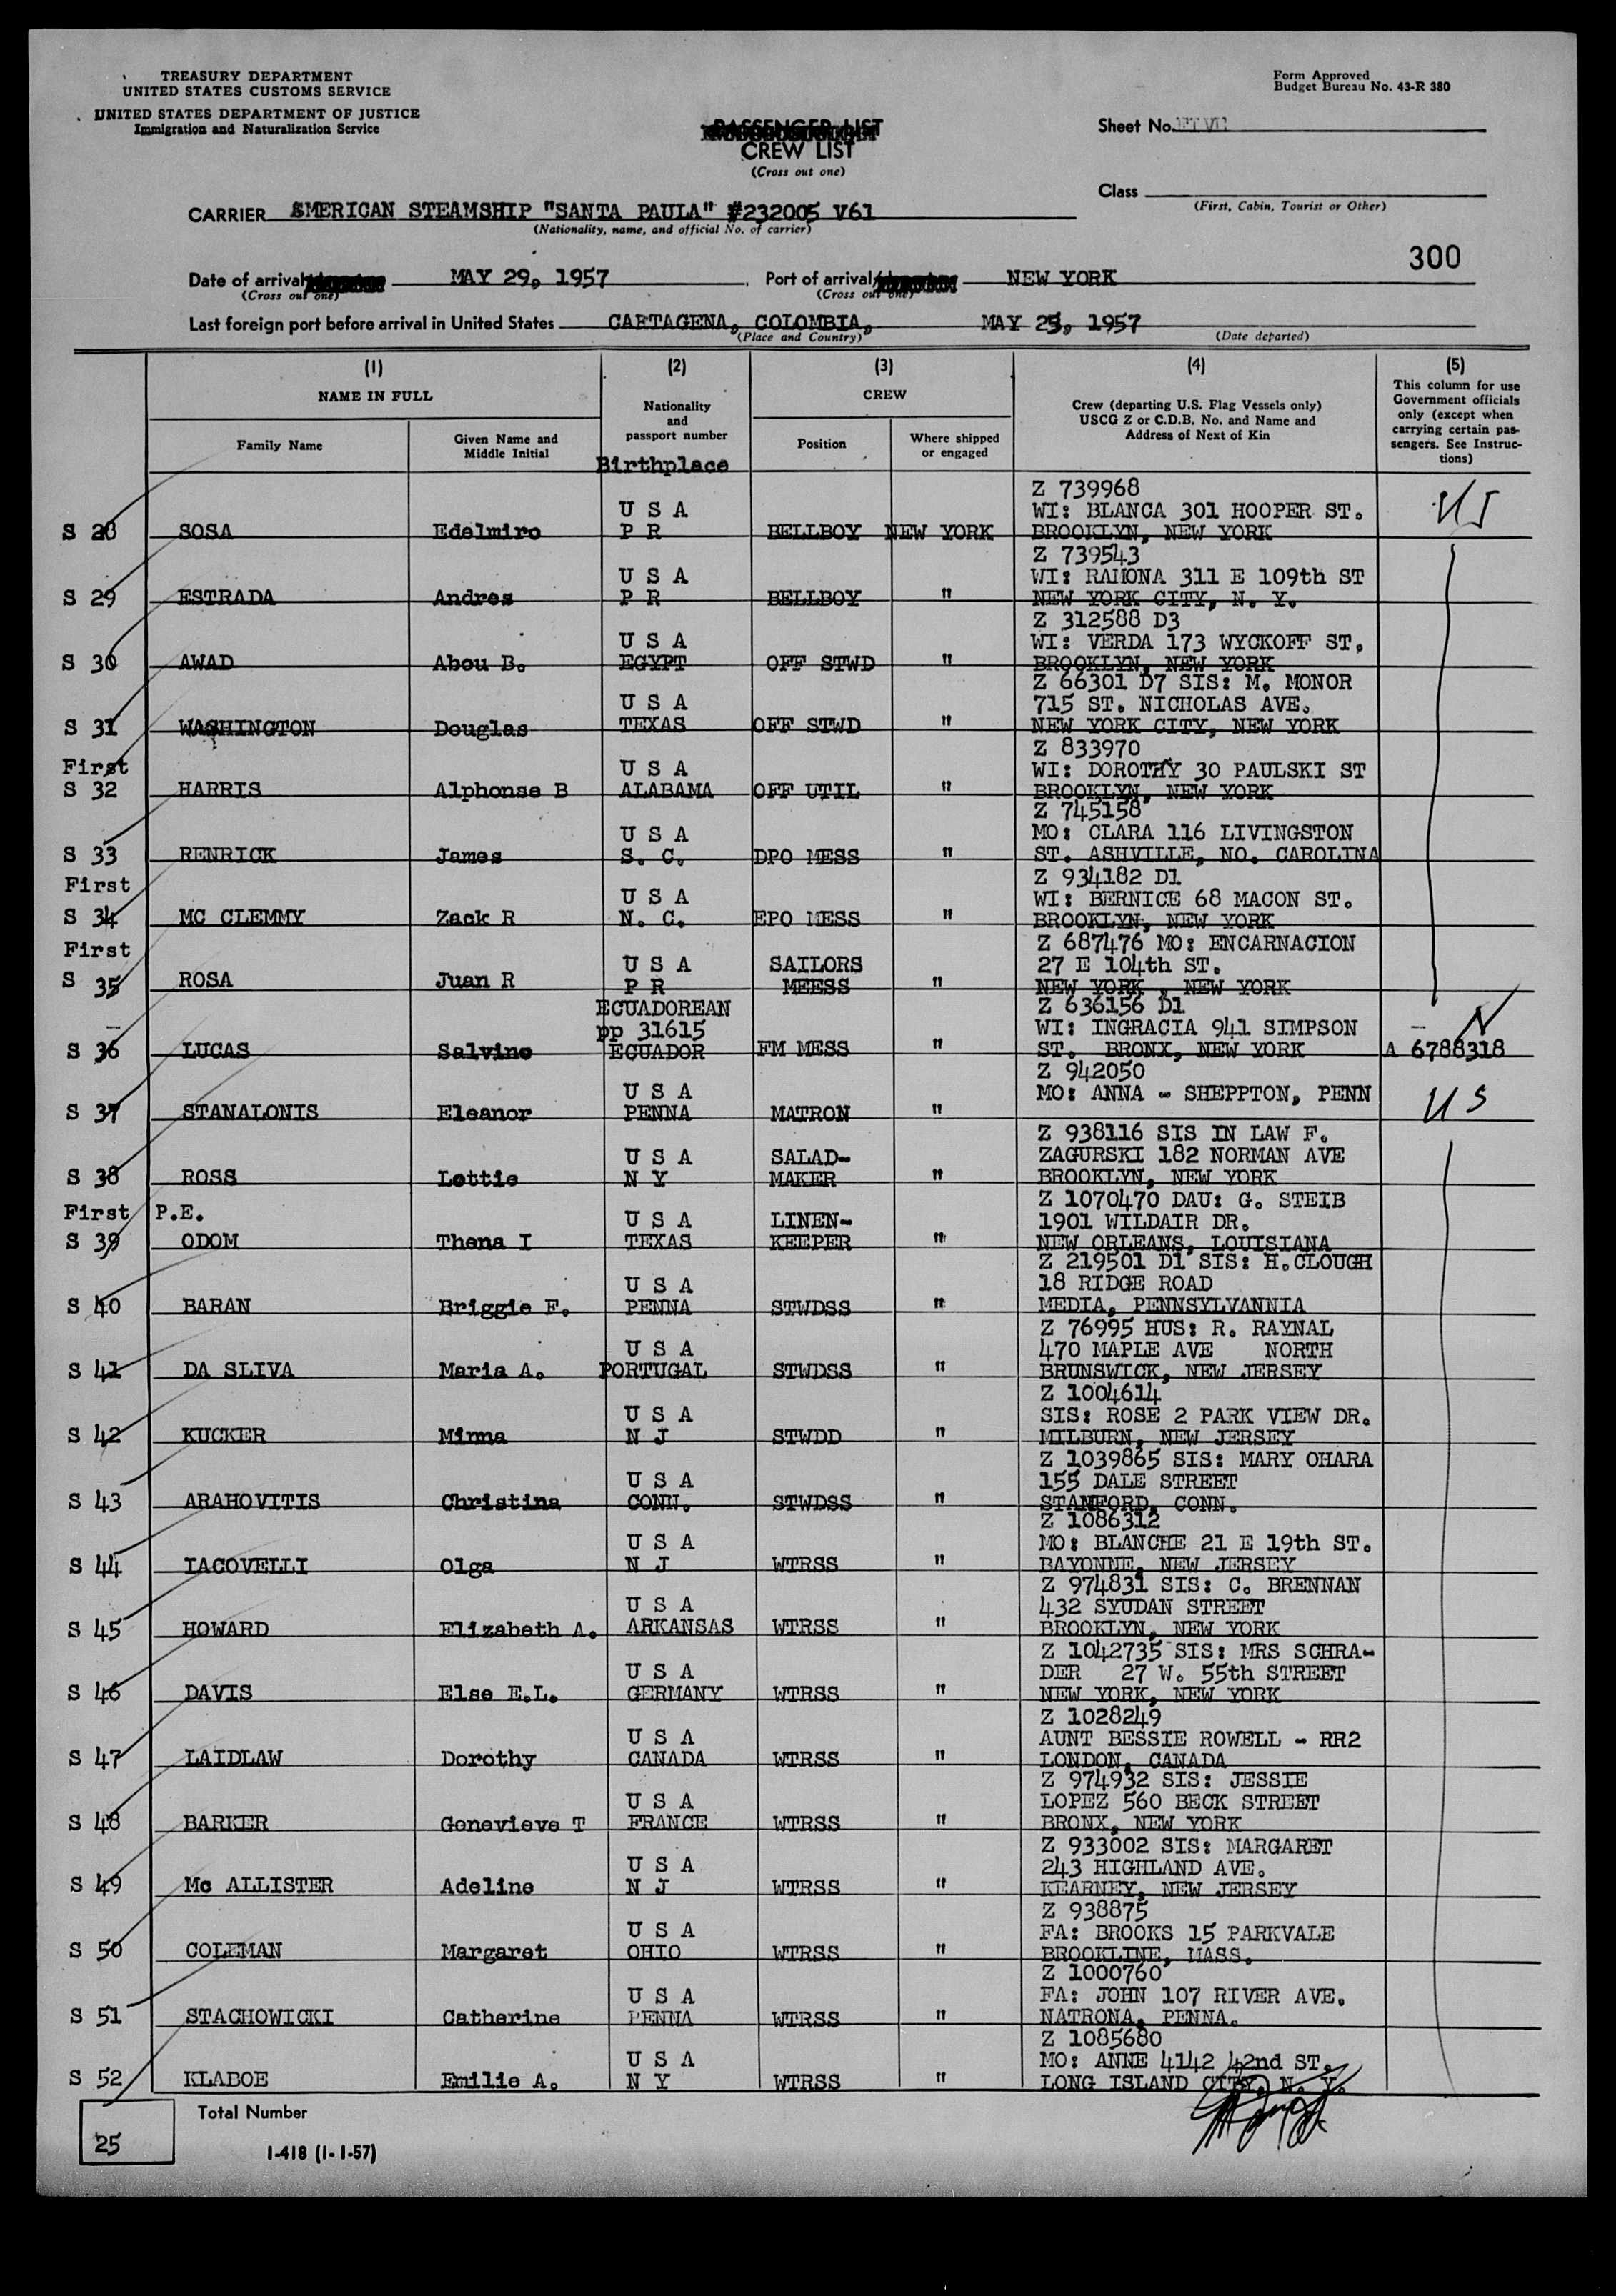 TREASURY DEPARTMENT
UNITED STATES CUSTOMS SERVICE
UNITED STATES DEPARTMENT OF JUSTICE
Immigration and Naturalization Service
Form Approved
Budget Bureau No. 43-R 380
PASSENGER LIST
CREW LIST
(Cross out one)
Sheet No. FIVE
Class
(First, Cabin, Tourist or Other)
CARRIER SMERICAN STEAMSHIP "SANTA PAULA" #232005 V61
(Nationality, name, and official No. of carrier)
300
Date of arrival MAY 29, 1957 Port of arrival NEW YORK
(Cross out one) (Cross out one)
Last foreign port before arrival in United States CARTAGENA, COLOMBIA, MAY 25, 1957
(Place and Country) (Date departed)
(1) (2) (3) (4) (5)
NAME IN FULL
Family Name
Given Name and
Middle Initial
Nationality
and
passport number
Birthplace
CREW
Position
Where shipped
or engaged
Crew (departing U.S. Flag Vessels only)
USCG Z or C.D.B. No. and Name and
Address of Next of Kin
This column for use
Government officials
only (except when
carrying certain pas-
sengers. See Instruc-
tions)
Z 739968
U S A WI: BLANCA 301 HOOPER ST. US
S 28 SOSA Edelmiro P R BELLBOY NEW YORK BROOKLYN, NEW YORK
Z 739543
U S A WI: RAMONA 311 E 109th ST
S 29 ESTRADA Andres P R BELLBOY " NEW YORK CITY, N. Y.
Z 312588 D3
U S A WI: VERDA 173 WYCKOFF ST.
S 30 AWAD Abou B. EGYPT OFF STWD " BROOKLYN, NEW YORK
Z 66301 D7 SIS: M. MONOR
U S A 715 ST. NICHOLAS AVE.
S 31 WASHINGTON Douglas TEXAS OFF STWD " NEW YORK CITY, NEW YORK
Z 833970
First U S A WI: DOROTHY 30 PAULSKI ST
S 32 HARRIS Alphonse B ALABAMA OFF UTIL " BROOKLYN, NEW YORK
Z 745158
U S A MO: CLARA 116 LIVINGSTON
S 33 RENRICK James S. C. DPO MESS " ST. ASHVILLE, NO. CAROLINA
First Z 934182 D1
U S A WI: BERNICE 68 MACON ST.
S 34 MC CLEMMY Zack R N. C. EPO MESS " BROOKLYN, NEW YORK
First Z 687476 MO: ENCARNACION
U S A SAILORS 27 E 104th ST.
S 35 ROSA Juan R P R MEESS " NEW YORK , NEW YORK
ECUADOREAN Z 636156 D1
pp 31615 WI: INGRACIA 941 SIMPSON N
S 36 LUCAS Salvino ECUADOR FM MESS " ST. BRONX, NEW YORK A 6788318
Z 942050
U S A MO: ANNA - SHEPPTON, PENN US
S 37 STANALONIS Eleanor PENNA MATRON "
Z 938116 SIS IN LAW F.
U S A SALAD- ZAGURSKI 182 NORMAN AVE
S 38 ROSS Lottie N Y MAKER " BROOKLYN, NEW YORK
First P.E. Z 1070470 DAU: G. STEIB
U S A LINEN- 1901 WILDAIR DR.
S 39 ODOM Thena I TEXAS KEEPER " NEW ORLEANS, LOUISIANA
Z 219501 D1 SIS: H.CLOUGH
U S A 18 RIDGE ROAD
S 40 BARAN Briggie F. PENNA STWDSS " MEDIA, PENNSYLVANNIA
Z 76995 HUS: R. RAYNAL
U S A 470 MAPLE AVE NORTH
S 41 DA SLIVA Maria A. PORTUGAL STWDSS " BRUNSWICK, NEW JERSEY
Z 1004614
U S A SIS: ROSE 2 PARK VIEW DR.
S 42 KUCKER Minna N J STWDD " MILBURN, NEW JERSEY
Z 1039865 SIS: MARY OHARA
U S A 155 DALE STREET
S 43 ARAHOVITIS Christina CONN. STWDSS " STANFORD, CONN.
Z 1086312
U S A MO: BLANCHE 21 E 19th ST.
S 44 IACOVELLI Olga N J WTRSS " BAYONNE, NEW JERSEY
Z 974831 SIS: C. BRENNAN
U S A 432 SYUDAN STREET
S 45 HOWARD Elizabeth A. ARKANSAS WTRSS " BROOKLYN, NEW YORK
Z 1042735 SIS: MRS SCHRA-
U S A DER 27 W. 55th STREET
S 46 DAVIS Else E.L. GERMANY WTRSS " NEW YORK, NEW YORK
Z 1028249
U S A AUNT BESSIE ROWELL - RR2
S 47 LAIDLAW Dorothy CANADA WTRSS " LONDON, CANADA
Z 974932 SIS: JESSIE
U S A LOPEZ 560 BECK STREET
S 48 BARKER Genevieve T FRANCE WTRSS " BRONX, NEW YORK
Z 933002 SIS: MARGARET
U S A 243 HIGHLAND AVE.
S 49 Mc ALLISTER Adeline N J WTRSS " KEARNEY, NEW JERSEY
Z 938875
U S A FA: BROOKS 15 PARKVALE
S 50 COLEMAN Margaret OHIO WTRSS " BROOKLINE, MASS.
Z 1000760
U S A FA: JOHN 107 RIVER AVE.
S 51 STACHOWICKI Catherine PENNA WTRSS " NATRONA, PENNA.
Z 1085680
U S A MO: ANNE 4142 42nd ST.
S 52 KLABOE Emilie A. N Y WTRSS " LONG ISLAND CITY, N. Y.
Total Number
25
I-418 (1-1-57)